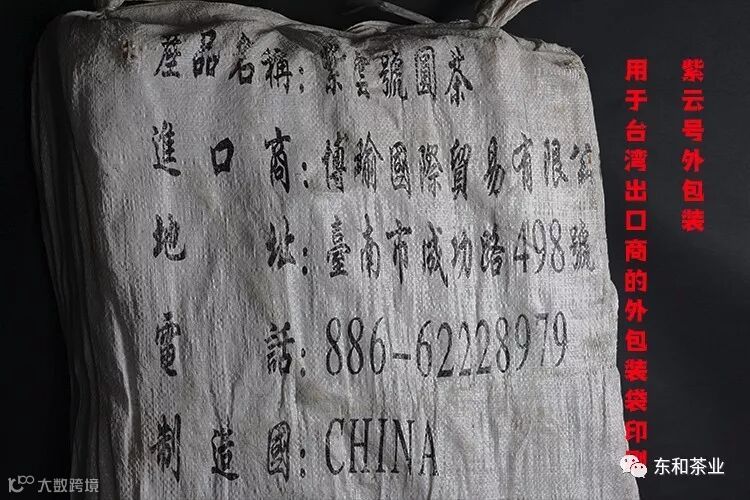 產品名稱：紫雲號圓茶
進口商：博瑜國際貿易有限公
地址：臺南市成功路498號
電話：886-62228979
制造國：CHINA
紫云号外包装
用于台湾出口商的外包装袋印刷
东和茶业
大数跨境